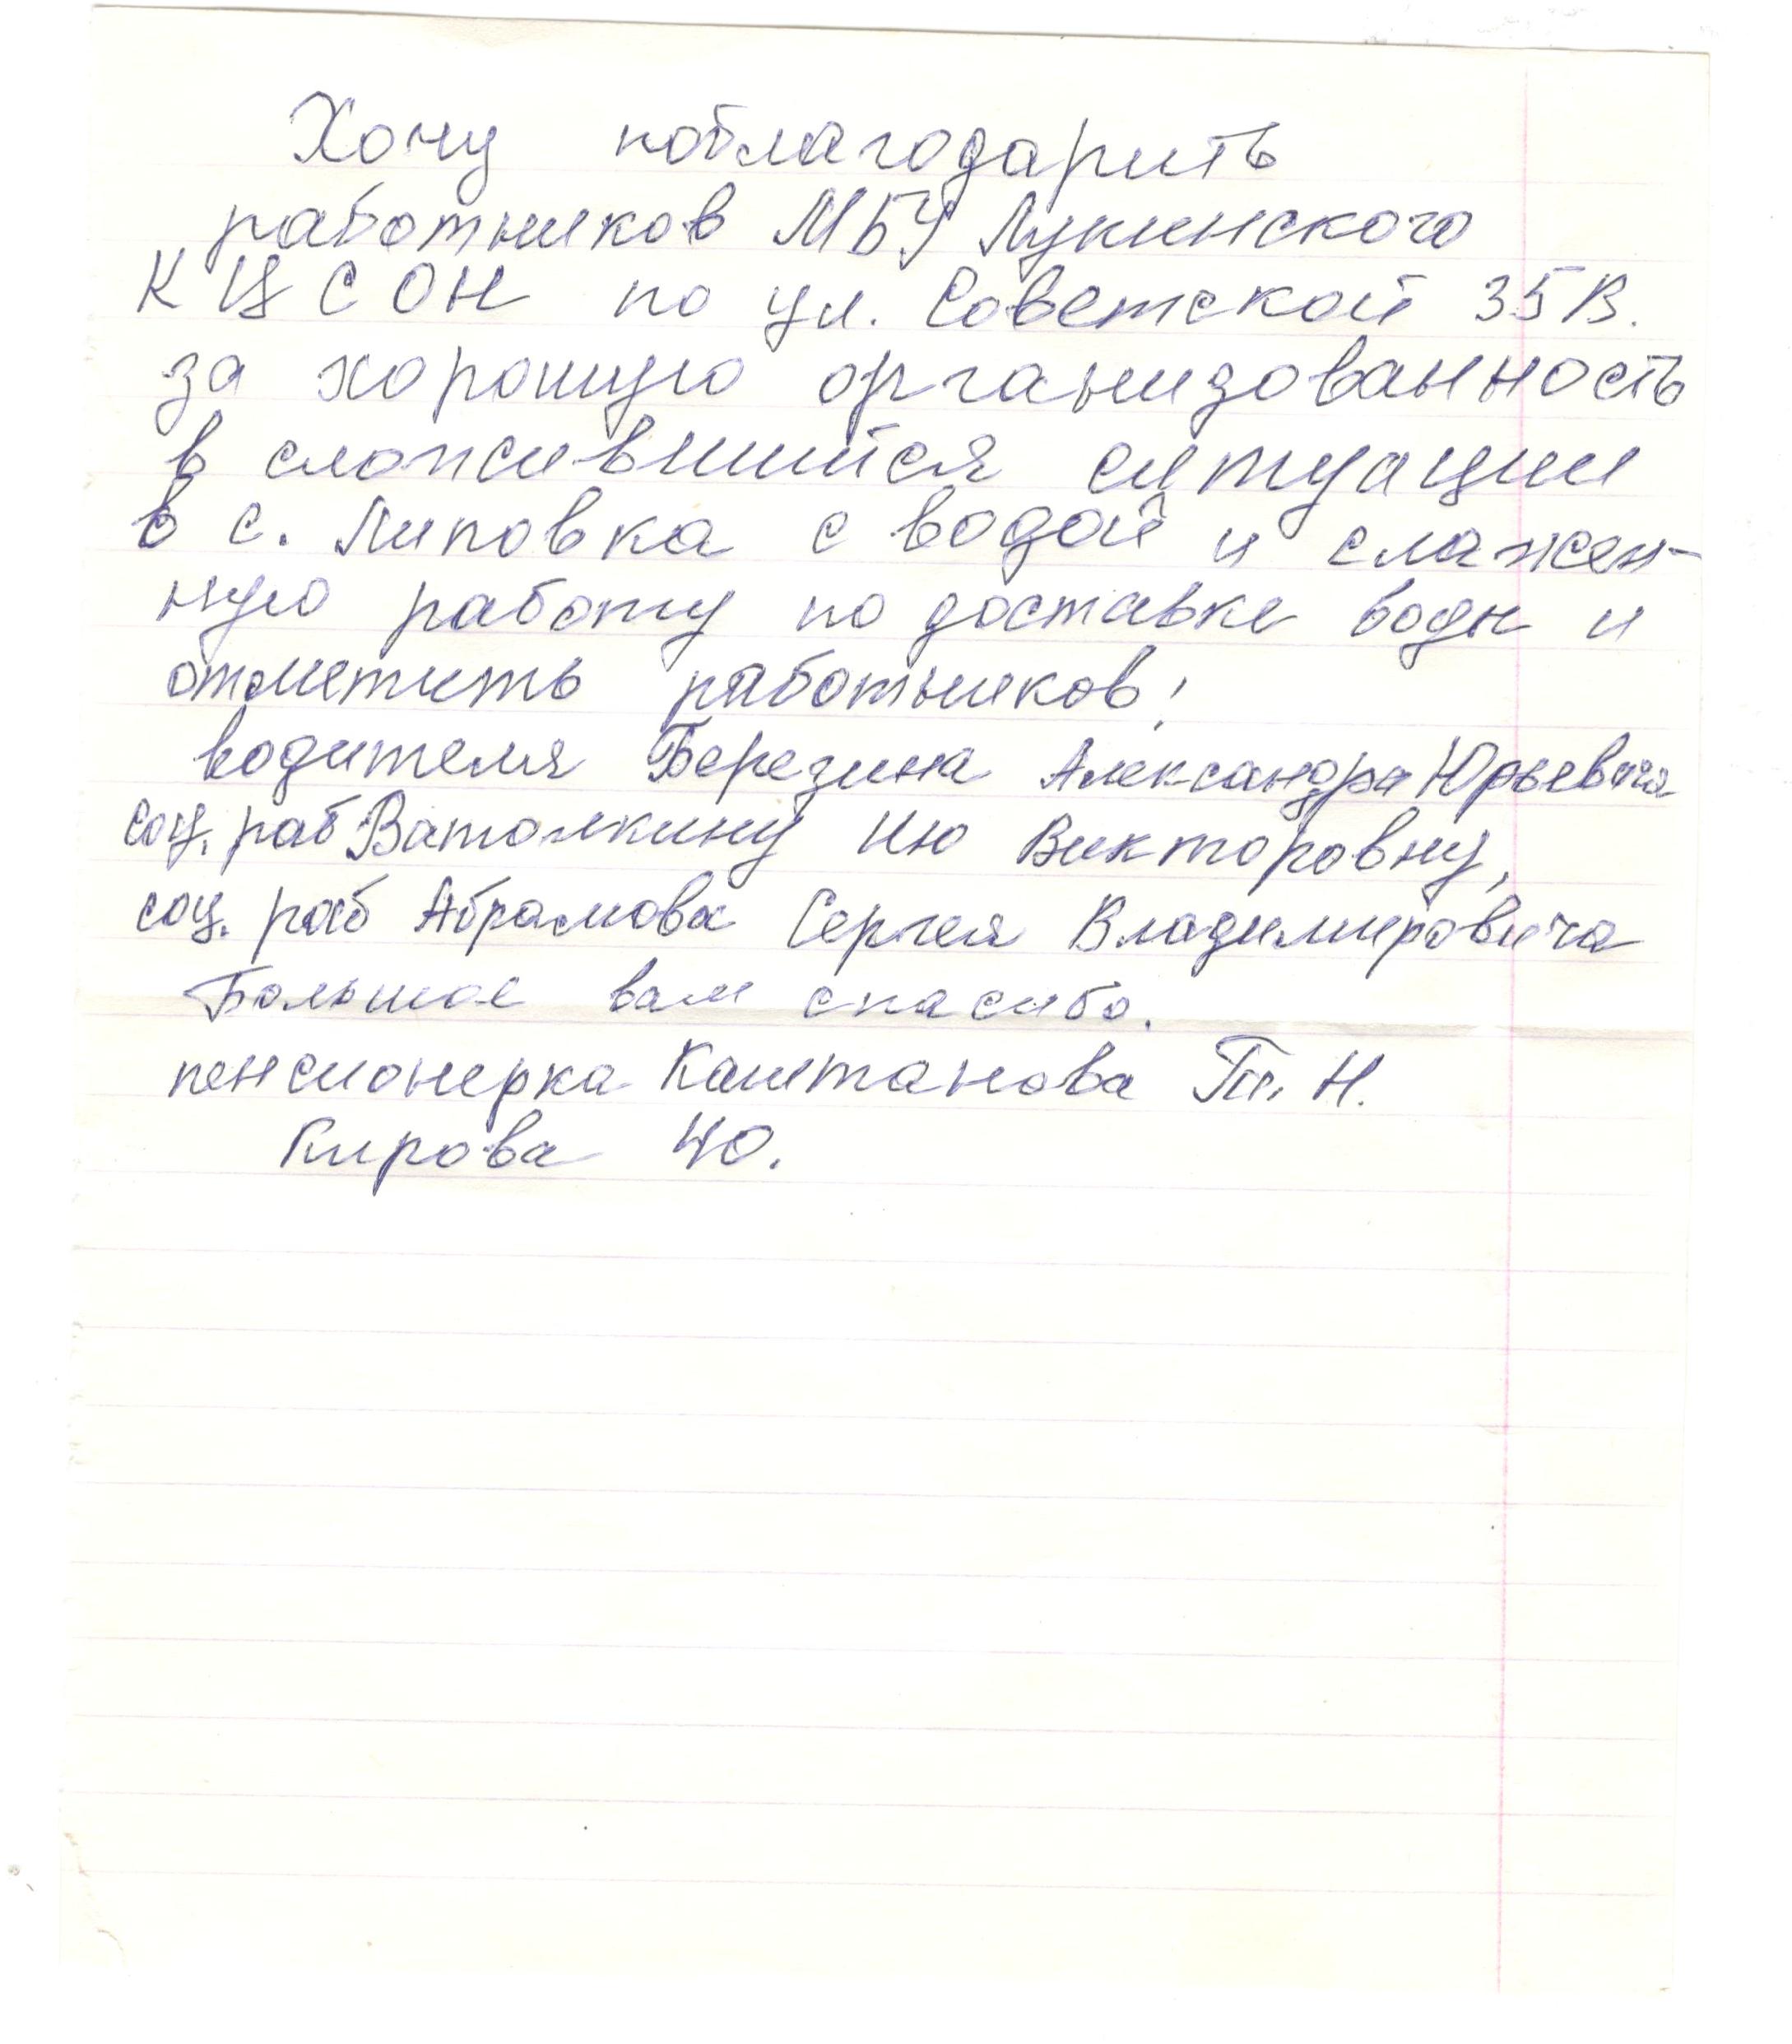 Хочу поблагодарить
работников МБУ Лукинского
КЦСОН по ул. Советской 35В.
за хорошую организованность
в сложившийся ситуации
в с. Липовка с водой и слажен-
ную работу по доставке воды и
отметить работников!
водителя Березина Александра Юрьевича
соц. раб Ватолкину Ию Викторовну,
соц. раб Абрамова Сергея Владимировича
Большое вам спасибо.
пенсионерка Каштанова Т. Н.
Кирова 40.